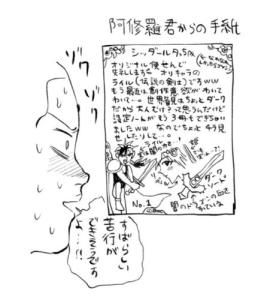 阿修羅君からの手紙
シッダールタっち江
オリジナル便せんで
失礼しまする。オリキャラの
ライル(伝説の剣士)ですww
もう最近は創作意欲がわいて
わいて…。世界観はちょっとダーク
だから大人むけ?って思うんだけど
設定ノートがもう3冊もできちゃい
ましたww なのでちょっと4月見
せしたりして…!
ダーク
ソード
闇のドラゴンの血を
No.1
すばらしい
苦行が
できそうです
よ…!!